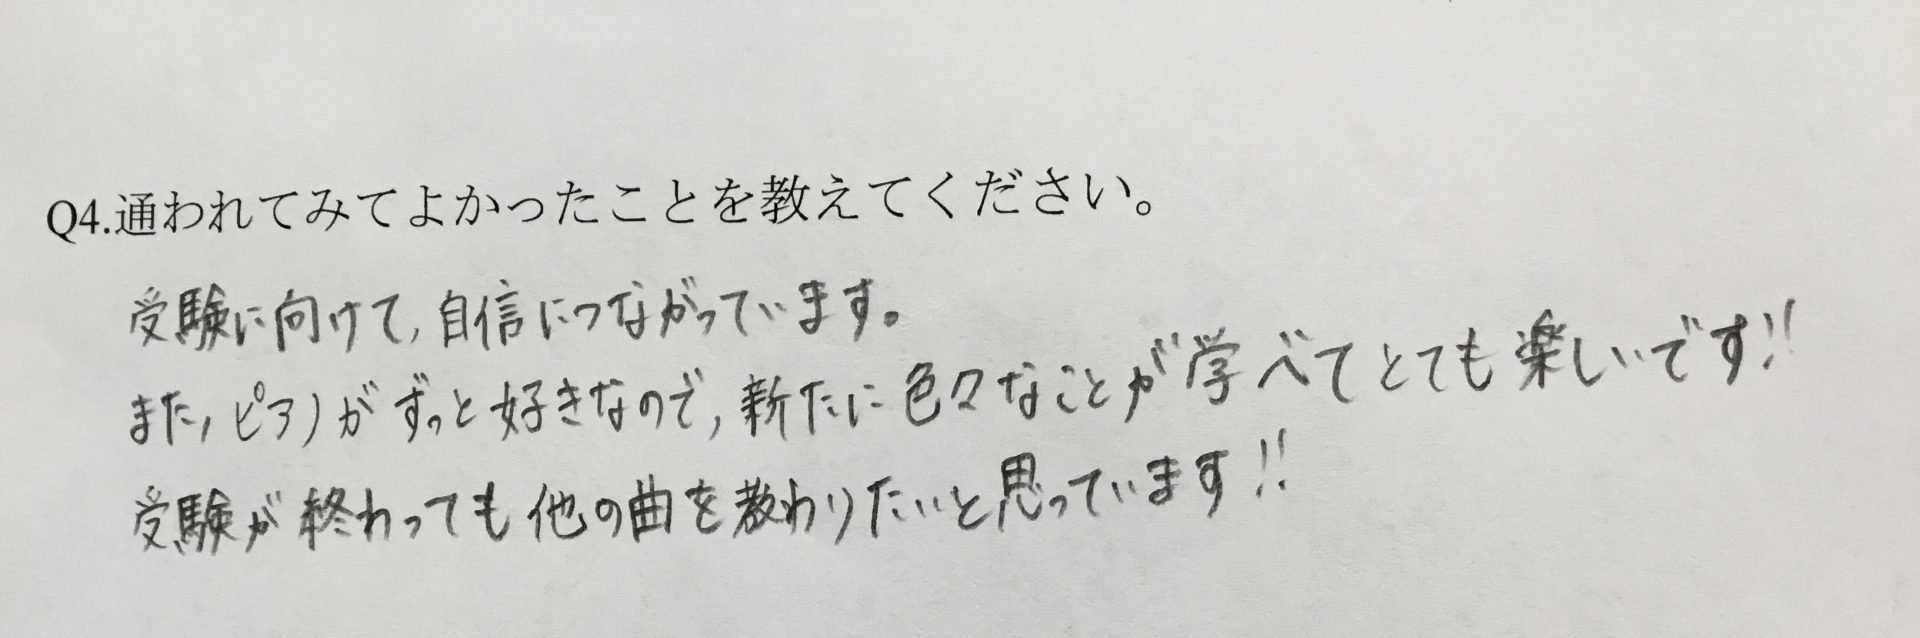 Q4.通われてみてよかったことを教えてください。
受験に向けて,自信につながっています。
また,ピアノがずっと好きなので,新たに色々なことが学べてとても楽しいです!!
受験が終わっても他の曲を教わりたいと思っています!!